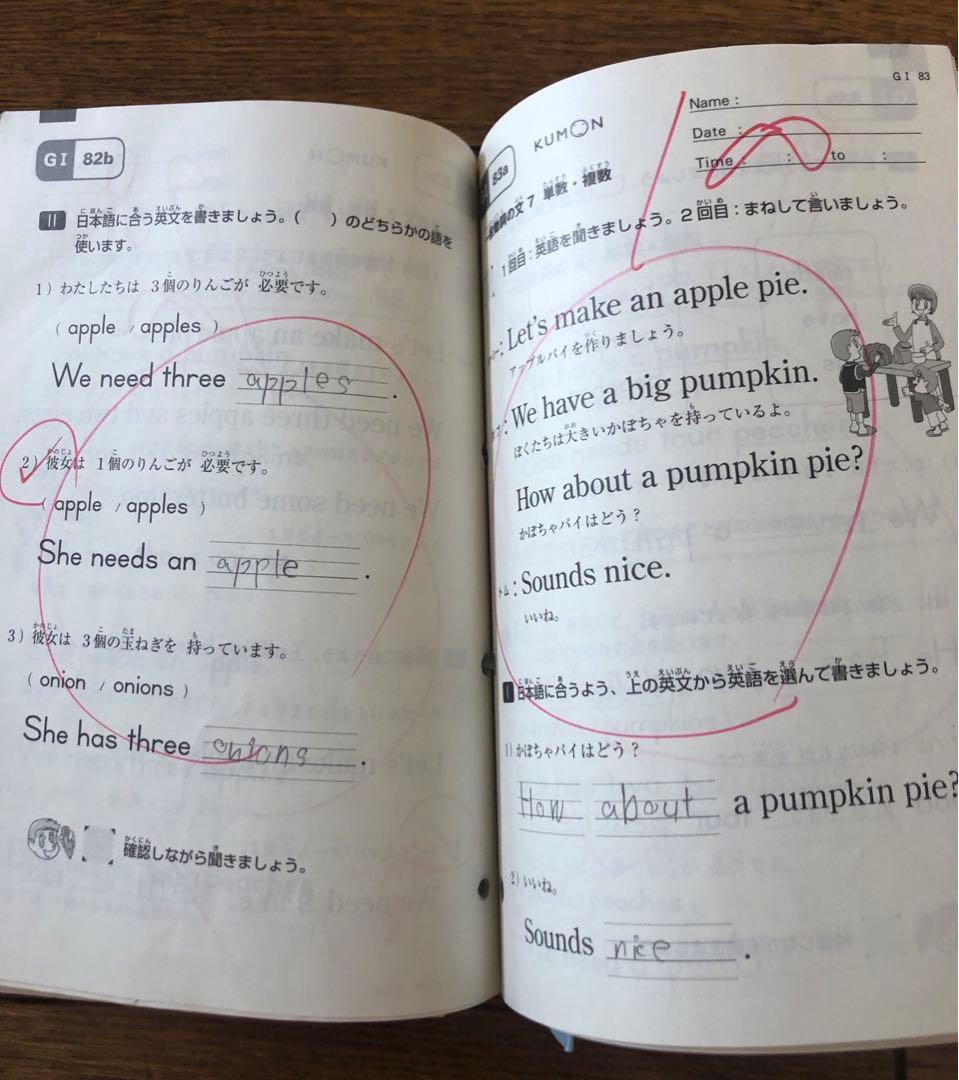 GI 82b
II 日本語に合う英文を書きましょう。(　)のどちらかの語を
使います。
1) わたしたちは 3個のりんごが 必要です。
( apple / apples )
We need three apples.
2) 彼女は 1個のりんごが 必要です。
( apple / apples )
She needs an apple.
3) 彼女は 3個の玉ねぎを 持っています。
( onion / onions )
She has three onions.
確認しながら聞きましょう。
GI 83
83a
KUMON
Name :
Date :
Time : : to :
の文7 単数・複数
1回目:英語を聞きましょう。2回目:まねして言いましょう。
Let's make an apple pie.
アップルパイを作りましょう。
We have a big pumpkin.
ぼくたちは大きいかぼちゃを持っているよ。
How about a pumpkin pie?
かぼちゃパイはどう?
トム:Sounds nice.
いいね。
I 日本語に合うよう、上の英文から英語を選んで書きましょう。
1) かぼちゃパイはどう?
How about a pumpkin pie?
2) いいね。
Sounds nice.